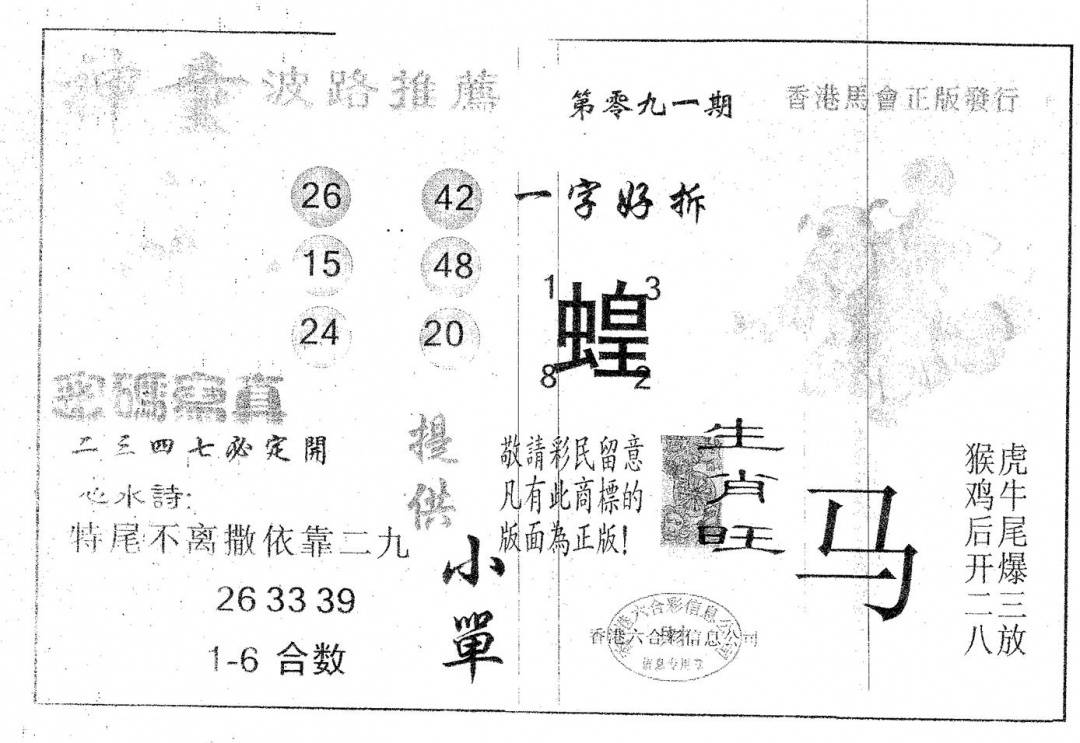 波路推薦
第零九一期
香港馬會正版發行
26 42
15 48
24 20
一字好拆
1 3
蝗
8 2
密碼寫真
二三四七必定開
心水詩:
特尾不离撒依靠二九
26 33 39
1-6 合数
提供
小單
敬請彩民留意
凡有此商標的
版面為正版!
生肖旺
马
虎牛尾爆三放
猴鸡后开二八
香港六合彩信息公司
信息专用章